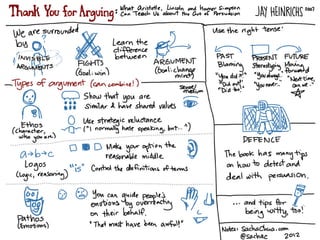 Thank You for Arguing:
What Aristotle, Lincoln and Homer Simpson
Can Teach Us about the Art of Persuasion
JAY HEINRICHS 2007
We are surrounded
by
INVISIBLE
ARGUMENTS
FIGHTS
(Goal: win)
Learn the
difference
between
ARGUMENT
(Goal: change
minds)
Types of argument (can combine!)
Sense/
medium
Ethos
(Character,
who you are)
Show that you are
similar & have shared values
Use strategic reluctance
("I normally hate speaking, but...")
a→b→c
Logos
(Logic, reasoning)
Make your option the
reasonable middle.
"is" Control the definitions of terms
Pathos
(Emotions)
You can guide people's
emotions by overreacting
on their behalf.
"That must have been awful!"
Use the right tense:
PAST
Blaming
"You did!"
"Did not!"
"Did too!"
PRESENT
Stereotyping
"You always..."
"You never..."
FUTURE
Moving
forward
"Next time,
can we..."
DEFENCE
The book has many tips
on how to detect and
deal with persuasion.
... and tips for
being witty, too!
Notes: SachaChua.com
@sachac 2012